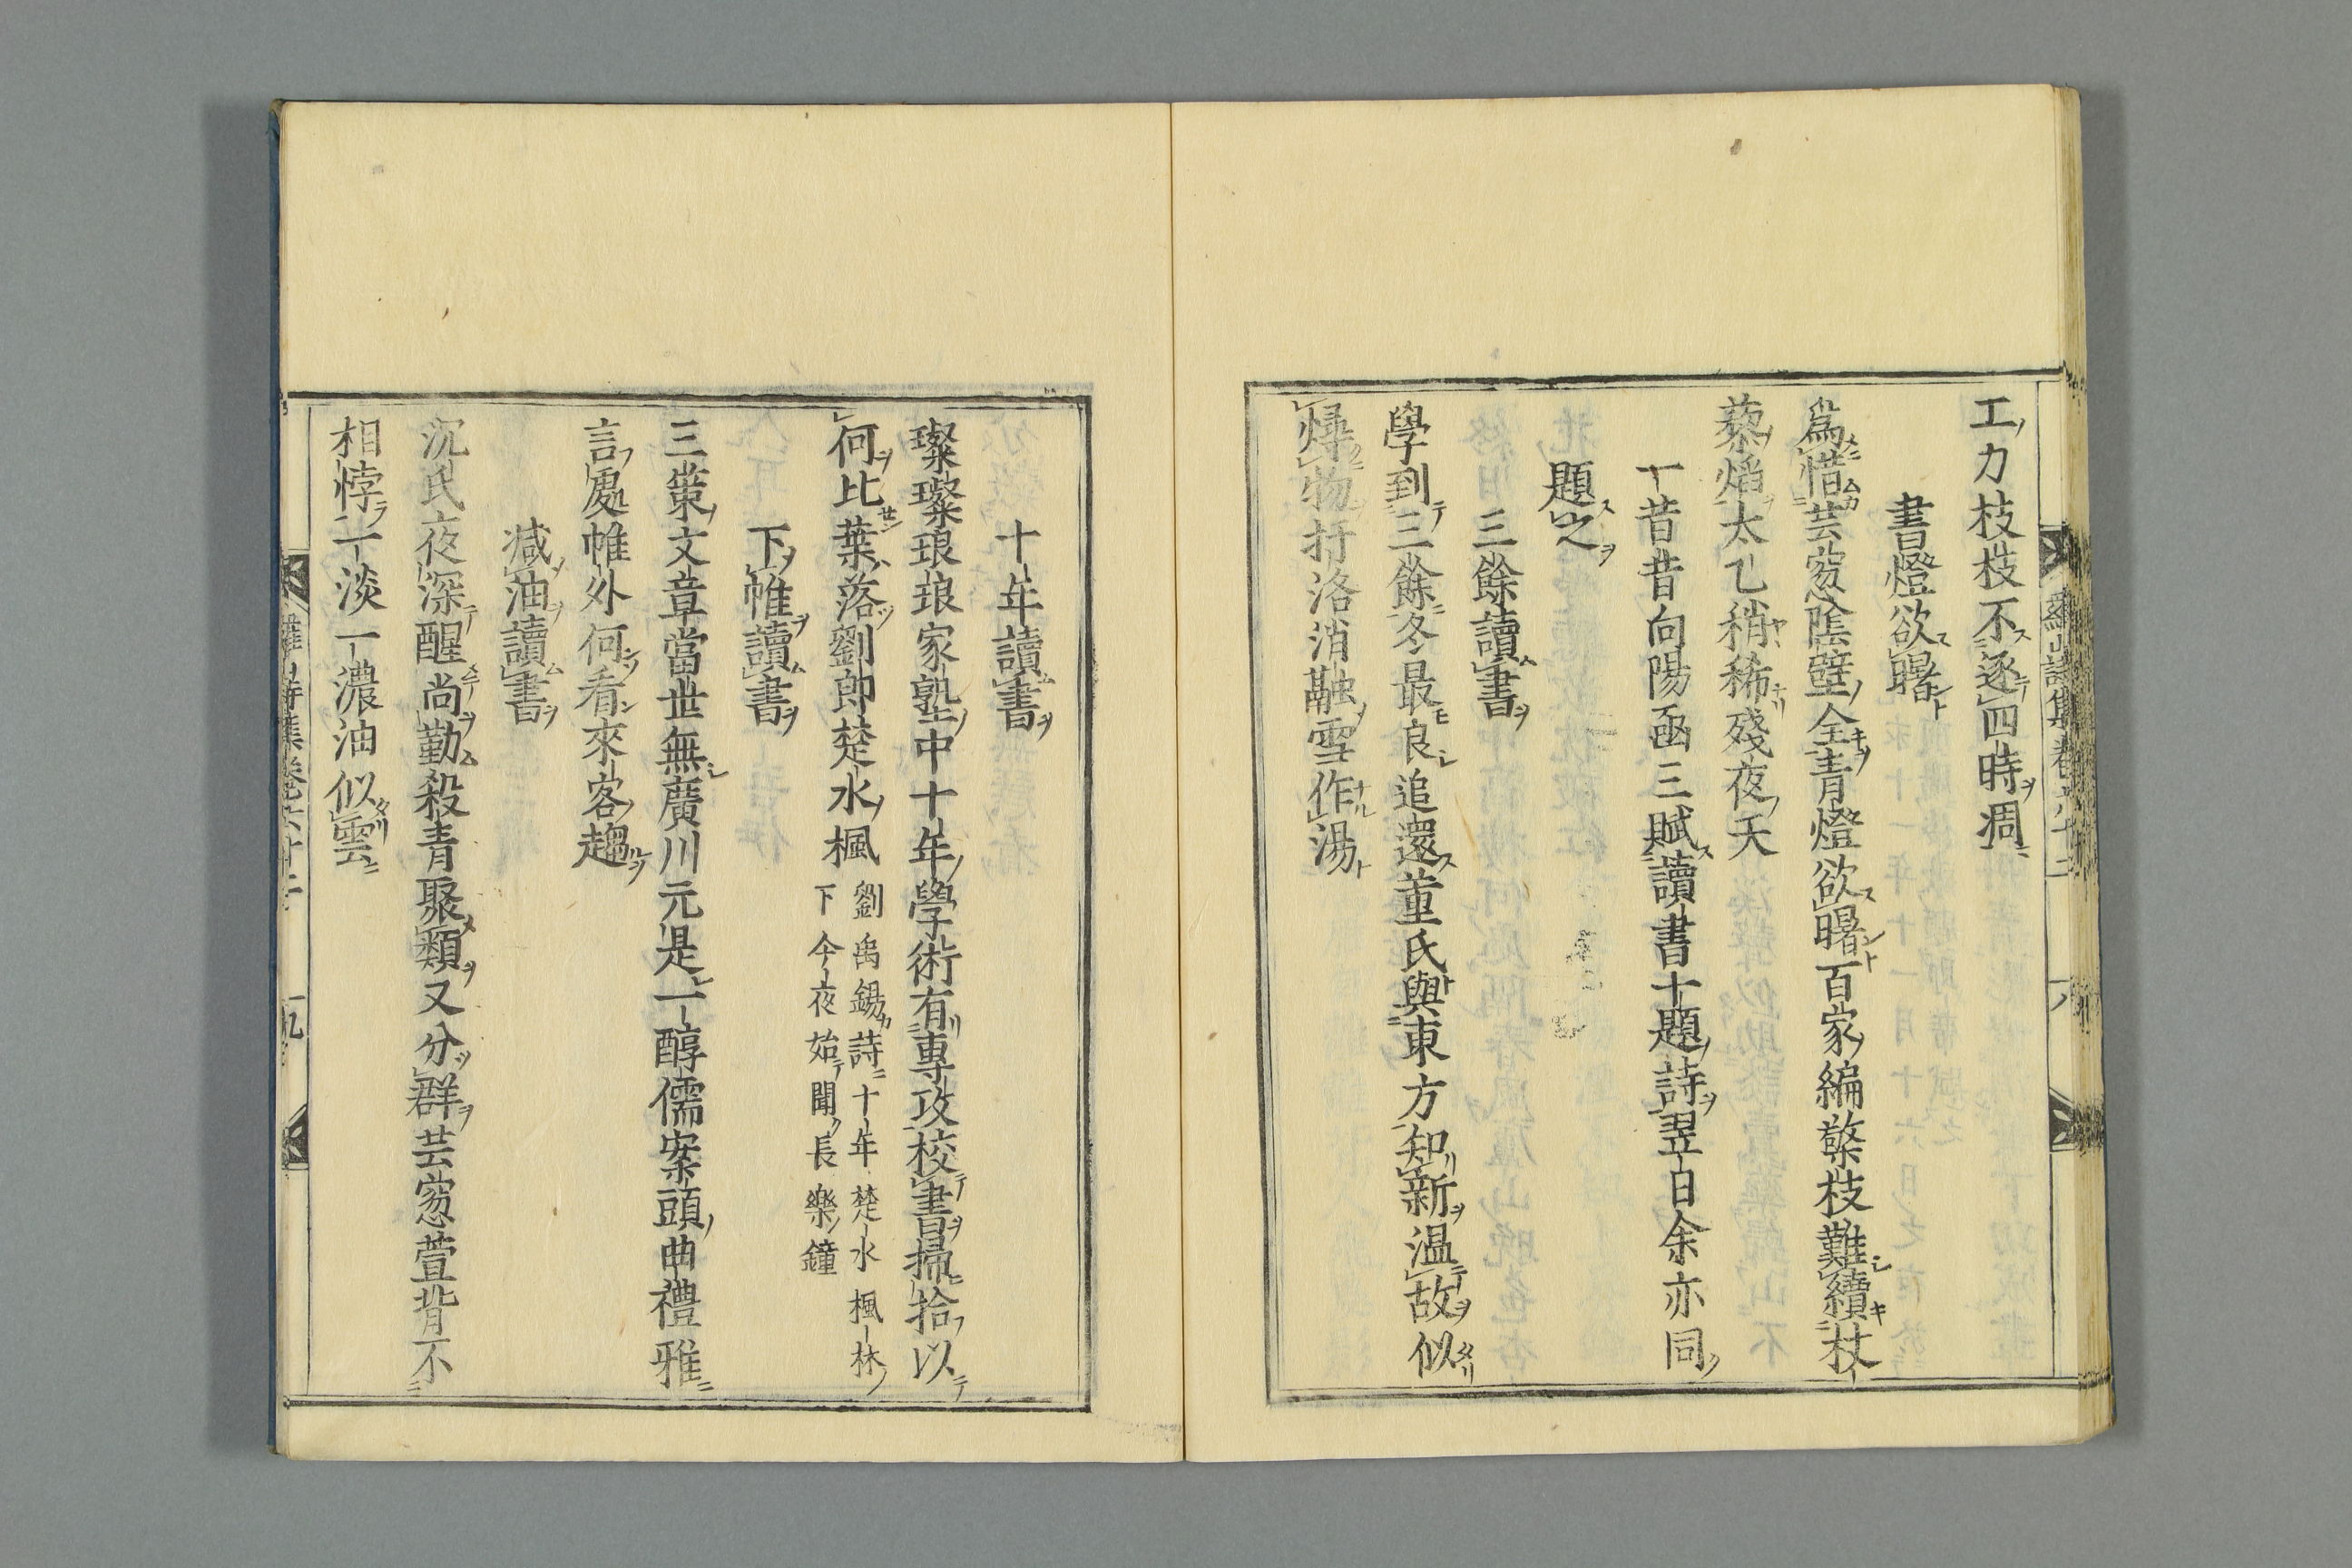 工力枝枝不逐四時凋
書燈欲曙
爲惜芸窓陰壁全青燈欲曙百家編檠枝難續杖
藜焰太乙稍稀殘夜天
一昔昔向陽函三賦讀書十題詩翌日余亦同
題之
三餘讀書
學到三餘冬最良追還董氏與東方知新温故似
燖物打洛消融雪作湯
十年讀書
璨璨琅琅家塾中十年學術有專攻校書掃拾以
何比葉落劉郎楚水楓
劉禹錫詩十年楚水楓林
下今夜始聞長樂鐘
下帷讀書
三策文章當世無廣川元是一醇儒案頭曲禮雅
言處帷外何看來客趨
減油讀書
沉氏夜深醒尚勤殺青聚類又分群芸窓萱背不
相悖一淡一濃油似雲